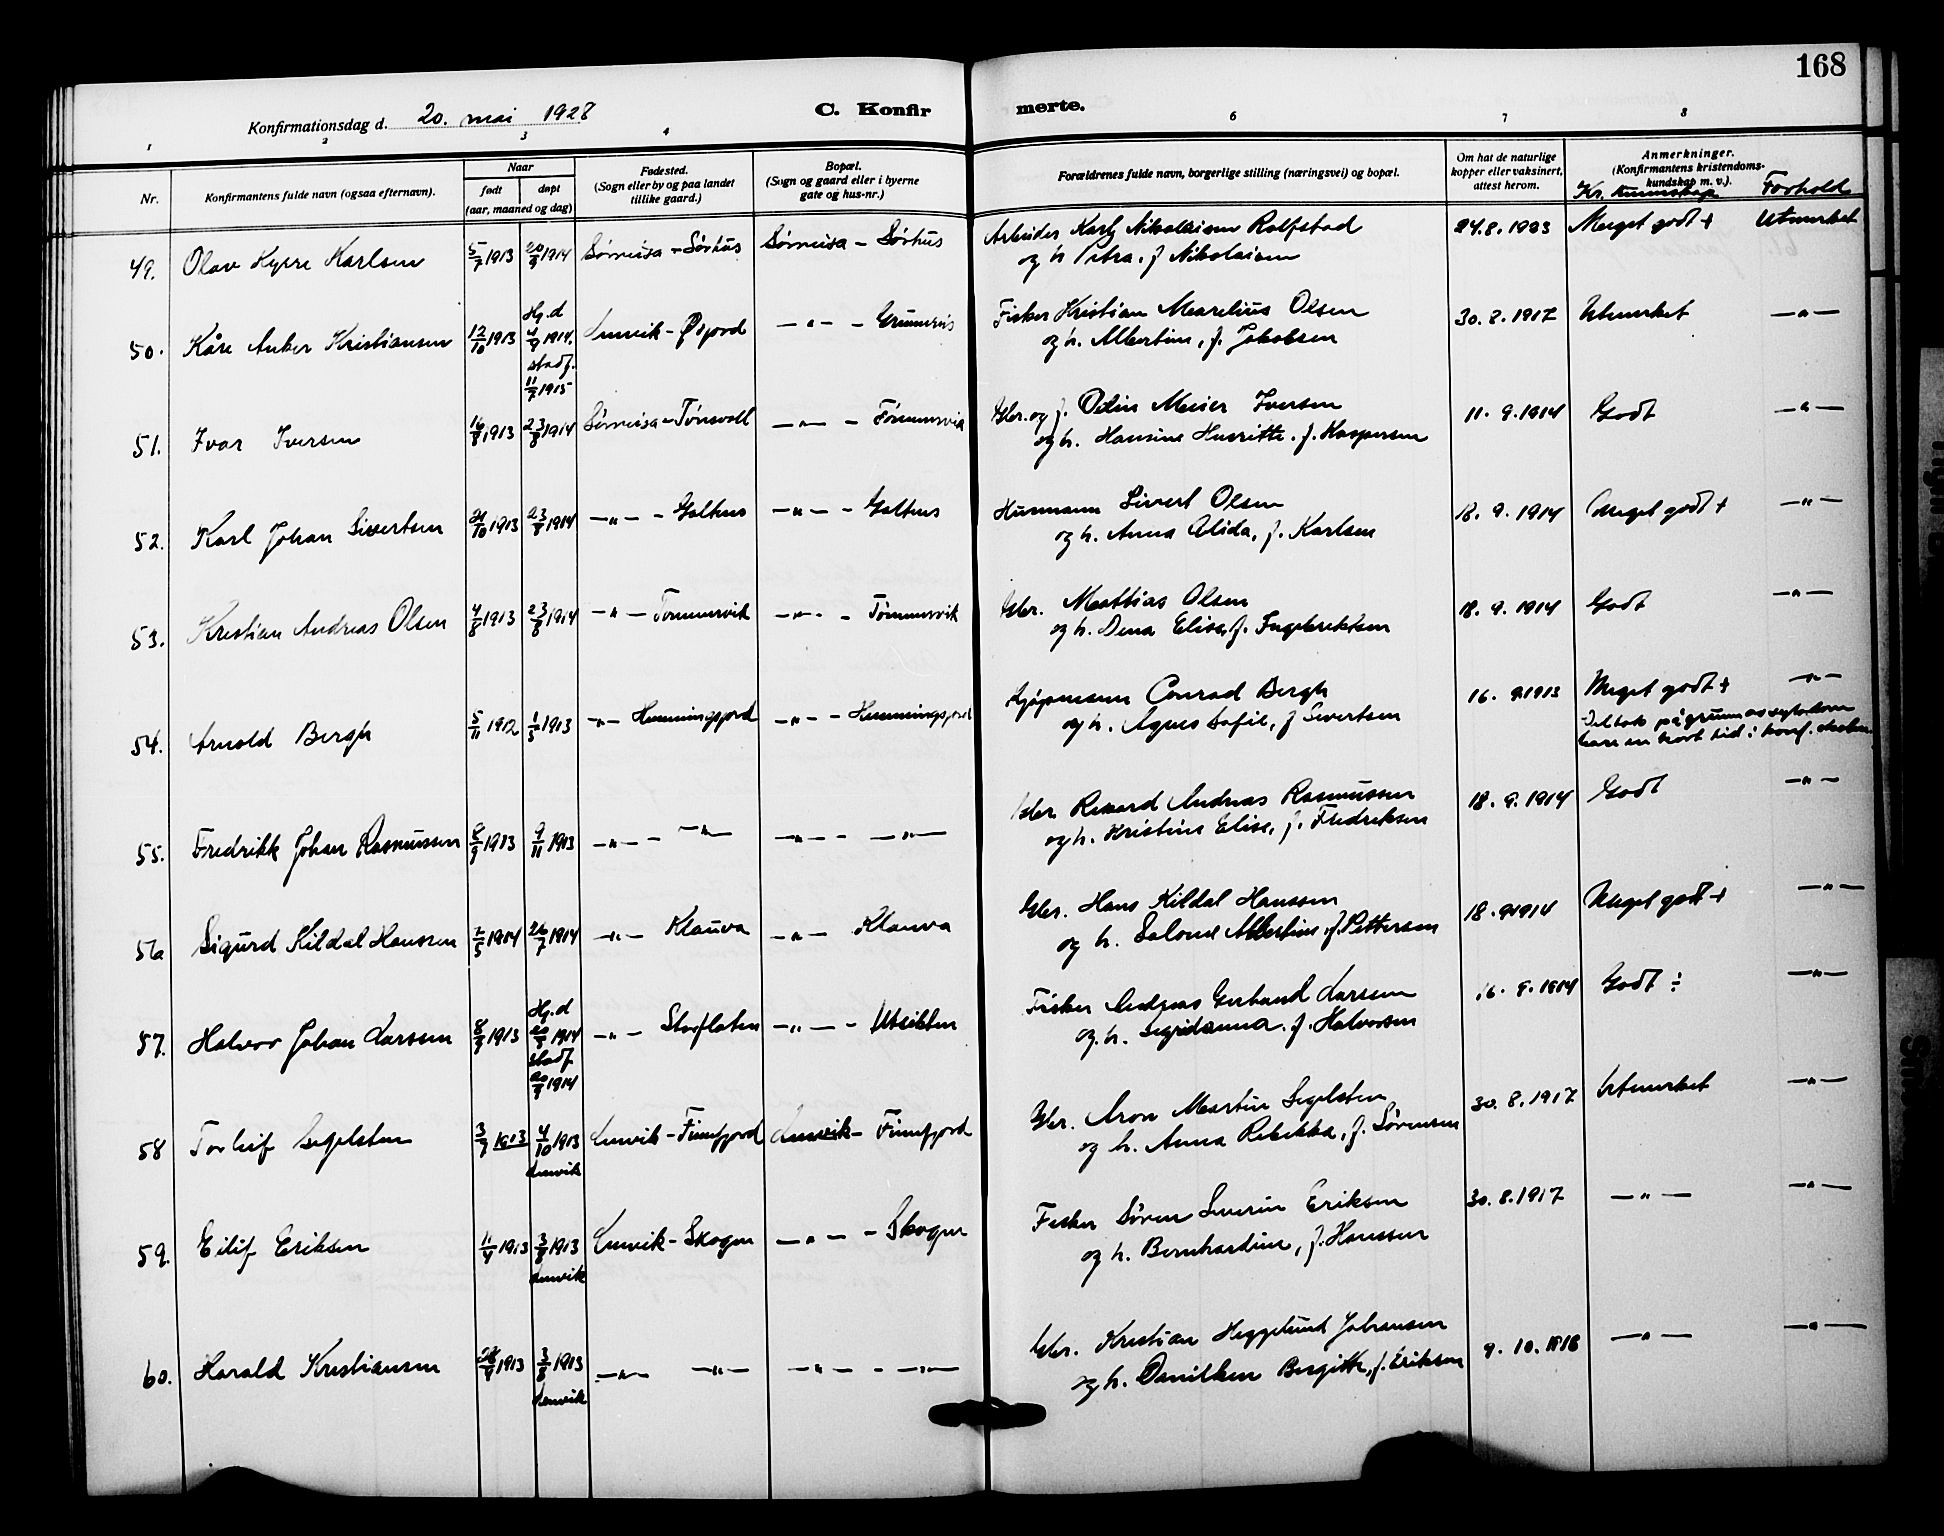 168
Konfirmationsdag d. 20. mai 1928 C. Konfirmerte.
1 2 3 4 6 7 8
Nr. Konfirmantens fulde navn (ogsaa efternavn). Naar født døpt (aar, maaned og dag) Fødested. (Sogn eller by og paa landet tillike gaard.) Bopæl. (Sogn og gaard eller i byerne gate og hus-nr.) Forældrenes fulde navn, borgerlige stilling (næringsvei) og bopæl. Om hat de naturlige kopper eller vaksinert, attest herom. Anmerkninger. (Konfirmantens kristendoms-kundskap m. v.). Kr. kunnskap Forhold
49. Olav Kyrre Karlsen 5/7 1913 20/9 1914 Sørreisa - Sørhus Sørreisa - Sørhus Arbeider Karl Nikolaisen Rolfstad 24.8.1923 Meget godt + Utmerket
og h. Petra f. Nikolaisen
50. Kåre Anker Kristiansen 12/10 1913 Hj.d 4/9 1914. stadf. 11/7 1915 Lenvik - Øijord -"- - Grunnreis Fisker Kristian Marelius Olsen 30.8.1917 Utmerket -"-
og h. Albertine, f. Jakobsen
51. Ivar Iversen 16/8 1913 23/8 1914 Sørreisa - Tønsvoll -"- - Tømmervik Gbr. og f. Odin Meier Iversen 11.9.1914 Godt -"-
og h. Hansine Henritte. f. Kaspersen
52. Karl Johan Sivertsen 21/10 1913 23/8 1914 -"- - Golthus -"- - Golthus Husmann Sivert Olsen 18.9.1914 Meget godt + -"-
og h. Anna Alida, f. Karlsen
53. Kristian Andreas Olsen 4/8 1913 23/8 1914 -"- Tømmervik -"- - Tømmervik Gbr. Mathias Olsen 18.9.1914 Godt -"-
og h. Dena Elise, f. Ingebriktsen
54. Arnold Bergh 5/11 1912 1/5 1913 -"- Hemmingsjord -"- - Hemmingsjord Kjøpmann Conrad Bergh 16.9.1913 Meget godt + -"-
og h. Agnes Sofie, f Sivertsen Deltok på grunn av sykdom
bare en kort tid i konf. skolen
55. Fredrikk Johan Rasmussen 8/9 1913 9/11 1913 -"- - -"- -"- - -"- Gbr. Rikard Andreas Rasmussen 18.9.1914 Godt -"-
og h. Kristine Elise, f. Fredriksen
56 Sigurd Kildal Hanssen 2/5 1914 26/7 1914 -"- Klauva -"- Klauva Gbr. Hans Kildal Hanssen 18.9.1914 Meget godt + -"-
og h. Salome Albertine f. Pettersen
57. Halvor Johan Larssen 8/9 1913 Hj.d 1914 stadf. 20/9 1914 -"- Storflaten -"- - Utsikten Fisker Andreas Gerhard Larssen 16.9.1914 Godt ÷ -"-
og h. Sigridanna f. Halvorsen
58 Torleif Segelsten 3/7 1913 4/10 1913 Lenvik Lenvik - Finnfjord Lenvik - Finnfjord Gbr. Aron Martin Segelsten 30.8.1917 Utmerket -"-
og h. Anna Rebekka, f. Sørensen
59. Eilif Eriksen 11/4 1913 3/8 1913 Lenvik Lenvik - Skogen -"- - Skogen Fisker Søren Severin Eriksen 30.8.1917 -"- -"-
og h. Bernhardine, f. Hanssen
60. Harald Kristiansen 1913 3/8 1913 Lenvik -"- -"- -"- - -"- Gbr. Kristian Heggelund Johansen 9.10.1916 -"- -"-
og h. Danilken Bergitte, f. Eriksen